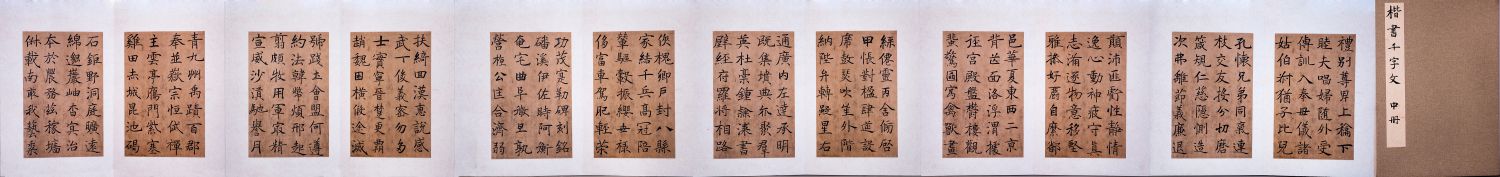 楷書千字文 中冊
禮別尊卑上和下
睦夫唱婦隨外受
傅訓入奉母儀諸
姑伯叔猶子比兒
孔懷兄弟同氣連
枝交友投分切磨
箴規仁慈隱惻造
次弗離節義廉退
顛沛匪虧性靜情
逸心動神疲守真
志滿逐物意移堅
雅操好爵自縻都
邑華夏東西二京
背芒面洛浮渭據
涇宮殿盤鬱樓觀
飛驚圖寫禽獸畫
綵僊靈丙舍傍啓
甲帳對楹肆筵設
席鼓瑟吹笙升階
納陛弁轉疑星右
通廣內左達承明
既集墳典亦聚羣
英杜稾鍾隸漆書
壁經府羅將相路
俠槐卿戶封八縣
家給千兵高冠陪
輦驅轂振纓世祿
侈富車駕肥輕策
功茂實勒碑刻銘
磻溪伊佐時阿衡
奄宅曲阜微旦孰
營桓公匡合濟弱
扶綺回漢惠說感
武丁俊乂密勿多
士寔寧晉楚更霸
趙魏困橫假途滅
虢踐土會盟何遵
約法韓弊煩刑起
翦頗牧用軍最精
宣威沙漠馳譽丹
青九州禹蹟百郡
秦並嶽宗恒岱禪
主雲亭鴈門紫塞
雞田赤城昆池碣
石鉅野洞庭曠遠
綿邈巖岫杳冥治
本於農務茲稼穡
俶載南畝我藝黍